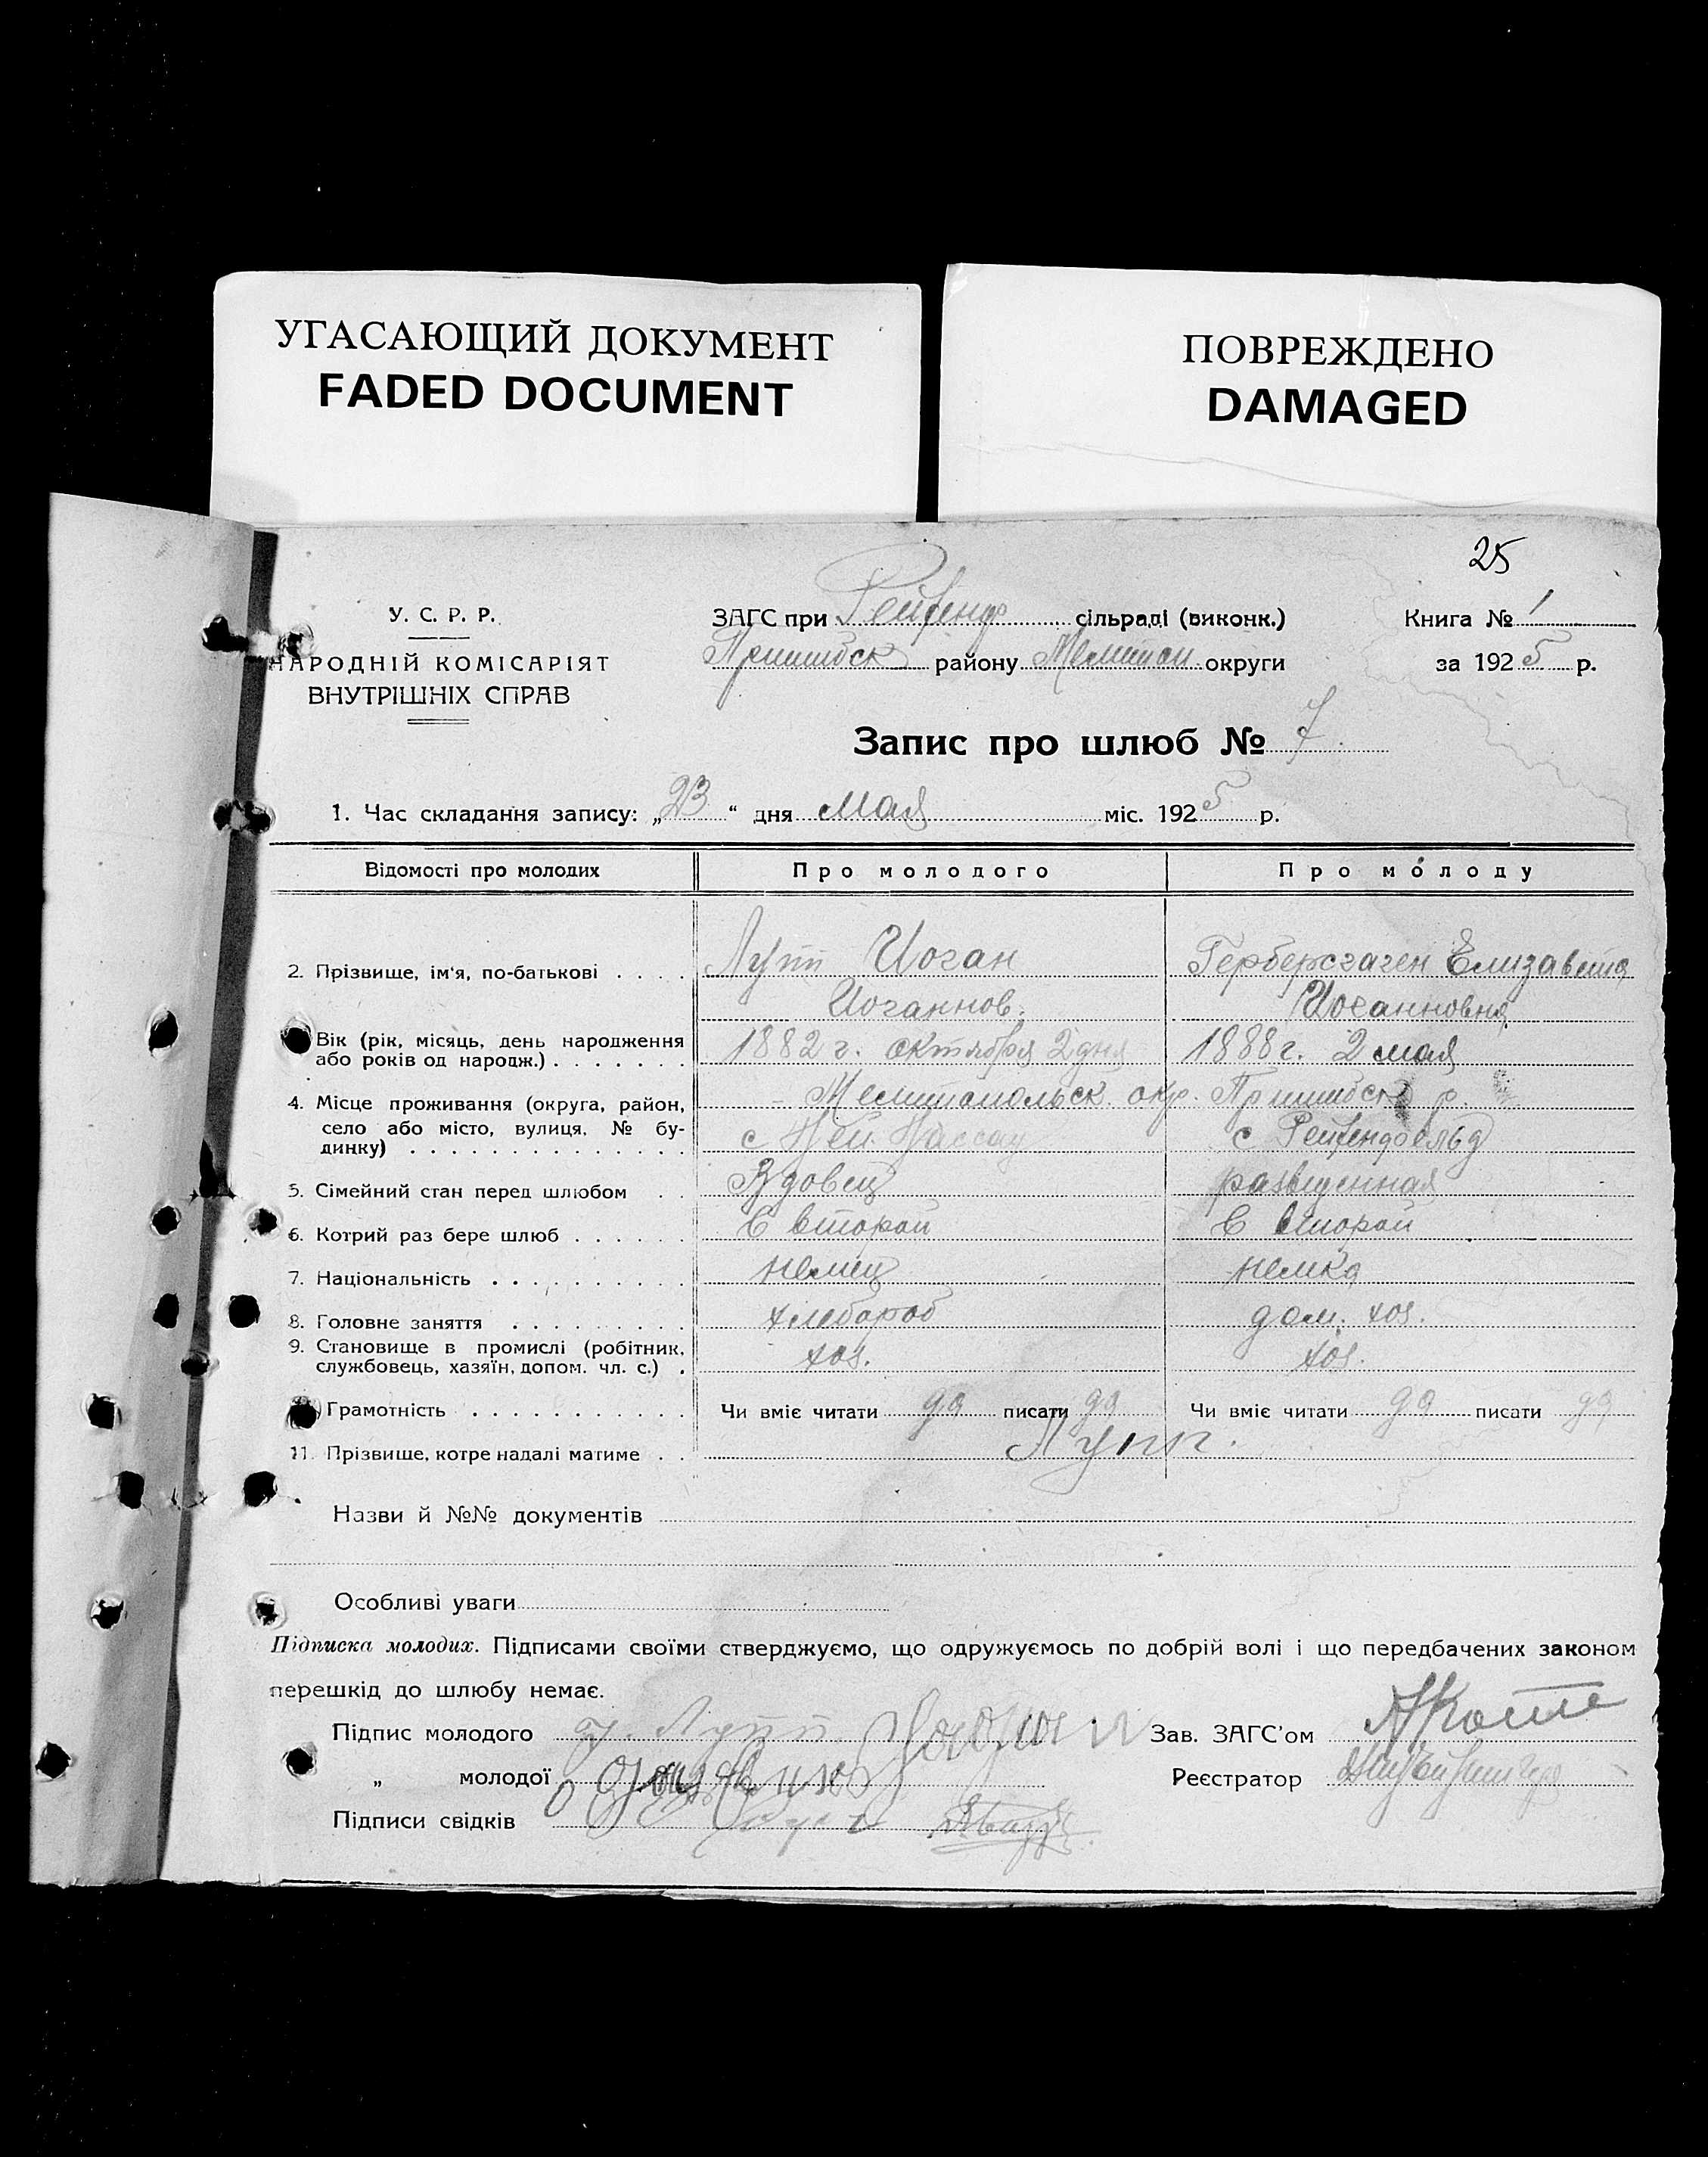 УГАСАЮЩИЙ ДОКУМЕНТ
FADED DOCUMENT
ПОВРЕЖДЕНО
DAMAGED
25
У. С. Р. Р.
НАРОДНІЙ КОМІСАРІЯТ
ВНУТРІШНІХ СПРАВ
ЗАГС при Рейхенф сільраді (виконк.)
Пришибск району Мелитоп округи
Книга № 1
за 1925 р.
Запис про шлюб № 7
1. Час складання запису: „23“ дня мая міс. 1925 р.
Відомості про молодих Про молодого Про мо́лоду
2. Прізвище, ім'я, по-батькові . . . . Лупп Иоган Герберсгаген Елизавета
Иоганнов. Иоганновна
Вік (рік, місяць, день народження
або років од народж.) . . . . . . . 1882 г. октября 2 дня 1888 г. 2 мая
4. Місце проживання (округа, район, Мелитопольск. окр. Пришибск р.
село або місто, вулиця, № бу-
динку) . . . . . . . . . . . . . . с Ней Нассау с Рейхенфельд
5. Сімейний стан перед шлюбом . . Вдовец разведенная
6. Котрий раз бере шлюб . . . . . . Є второй Є второй
7. Національність . . . . . . . . . немец немка
8. Головне заняття . . . . . . . . . хлебороб дом. хоз.
9. Становище в промислі (робітник,
службовець, хазяїн, допом. чл. с.) . хоз. хоз.
Грамотність . . . . . . . . . . . Чи вміє читати да писати да Чи вміє читати да писати да
11. Прізвище, котре надалі матиме . . Лупп.
Назви й №№ документів
Особливі уваги
Підписка молодих. Підписами своїми стверджуємо, що одружуємось по добрій волі і що передбачених законом
перешкід до шлюбу немає.
Підпис молодого Лупп Зав. ЗАГС'ом
„ молодої Реєстратор
Підписи свідків